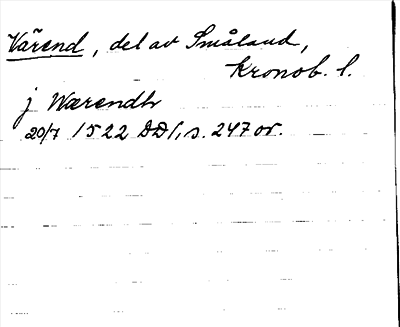 Värend, del av Småland,
Kronob. l.
j Wærendh
20/7 1522 DD 1, s. 247 or.